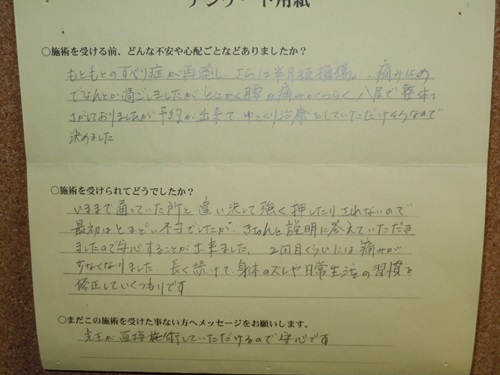 アンケート用紙
○施術を受ける前、どんな不安や心配ごとなどありましたか？
もともとのすべり症が再発し、さらに半月板損傷し、痛み止め
でなんとか過ごしましたがとにかく腰の痛みがつらく八尾で整体を
さがしておりましたが予約が出来て、ゆっくり治療をしていただけそうなので
決めました
○施術を受けられてどうでしたか？
いままで通っていた所と違い決して強く押したりされないので
最初はとまどい、不安でしたが、きちんと説明に答えていただき
ましたので安心することが出来ました。2回目くらいには痛みが
少なくなりました 長く続けて、身体のズレや日常生活の習慣を
修正していくつもりです
○まだこの施術を受けた事ない方へメッセージをお願いします。
先生が直接施術していただけるので安心です